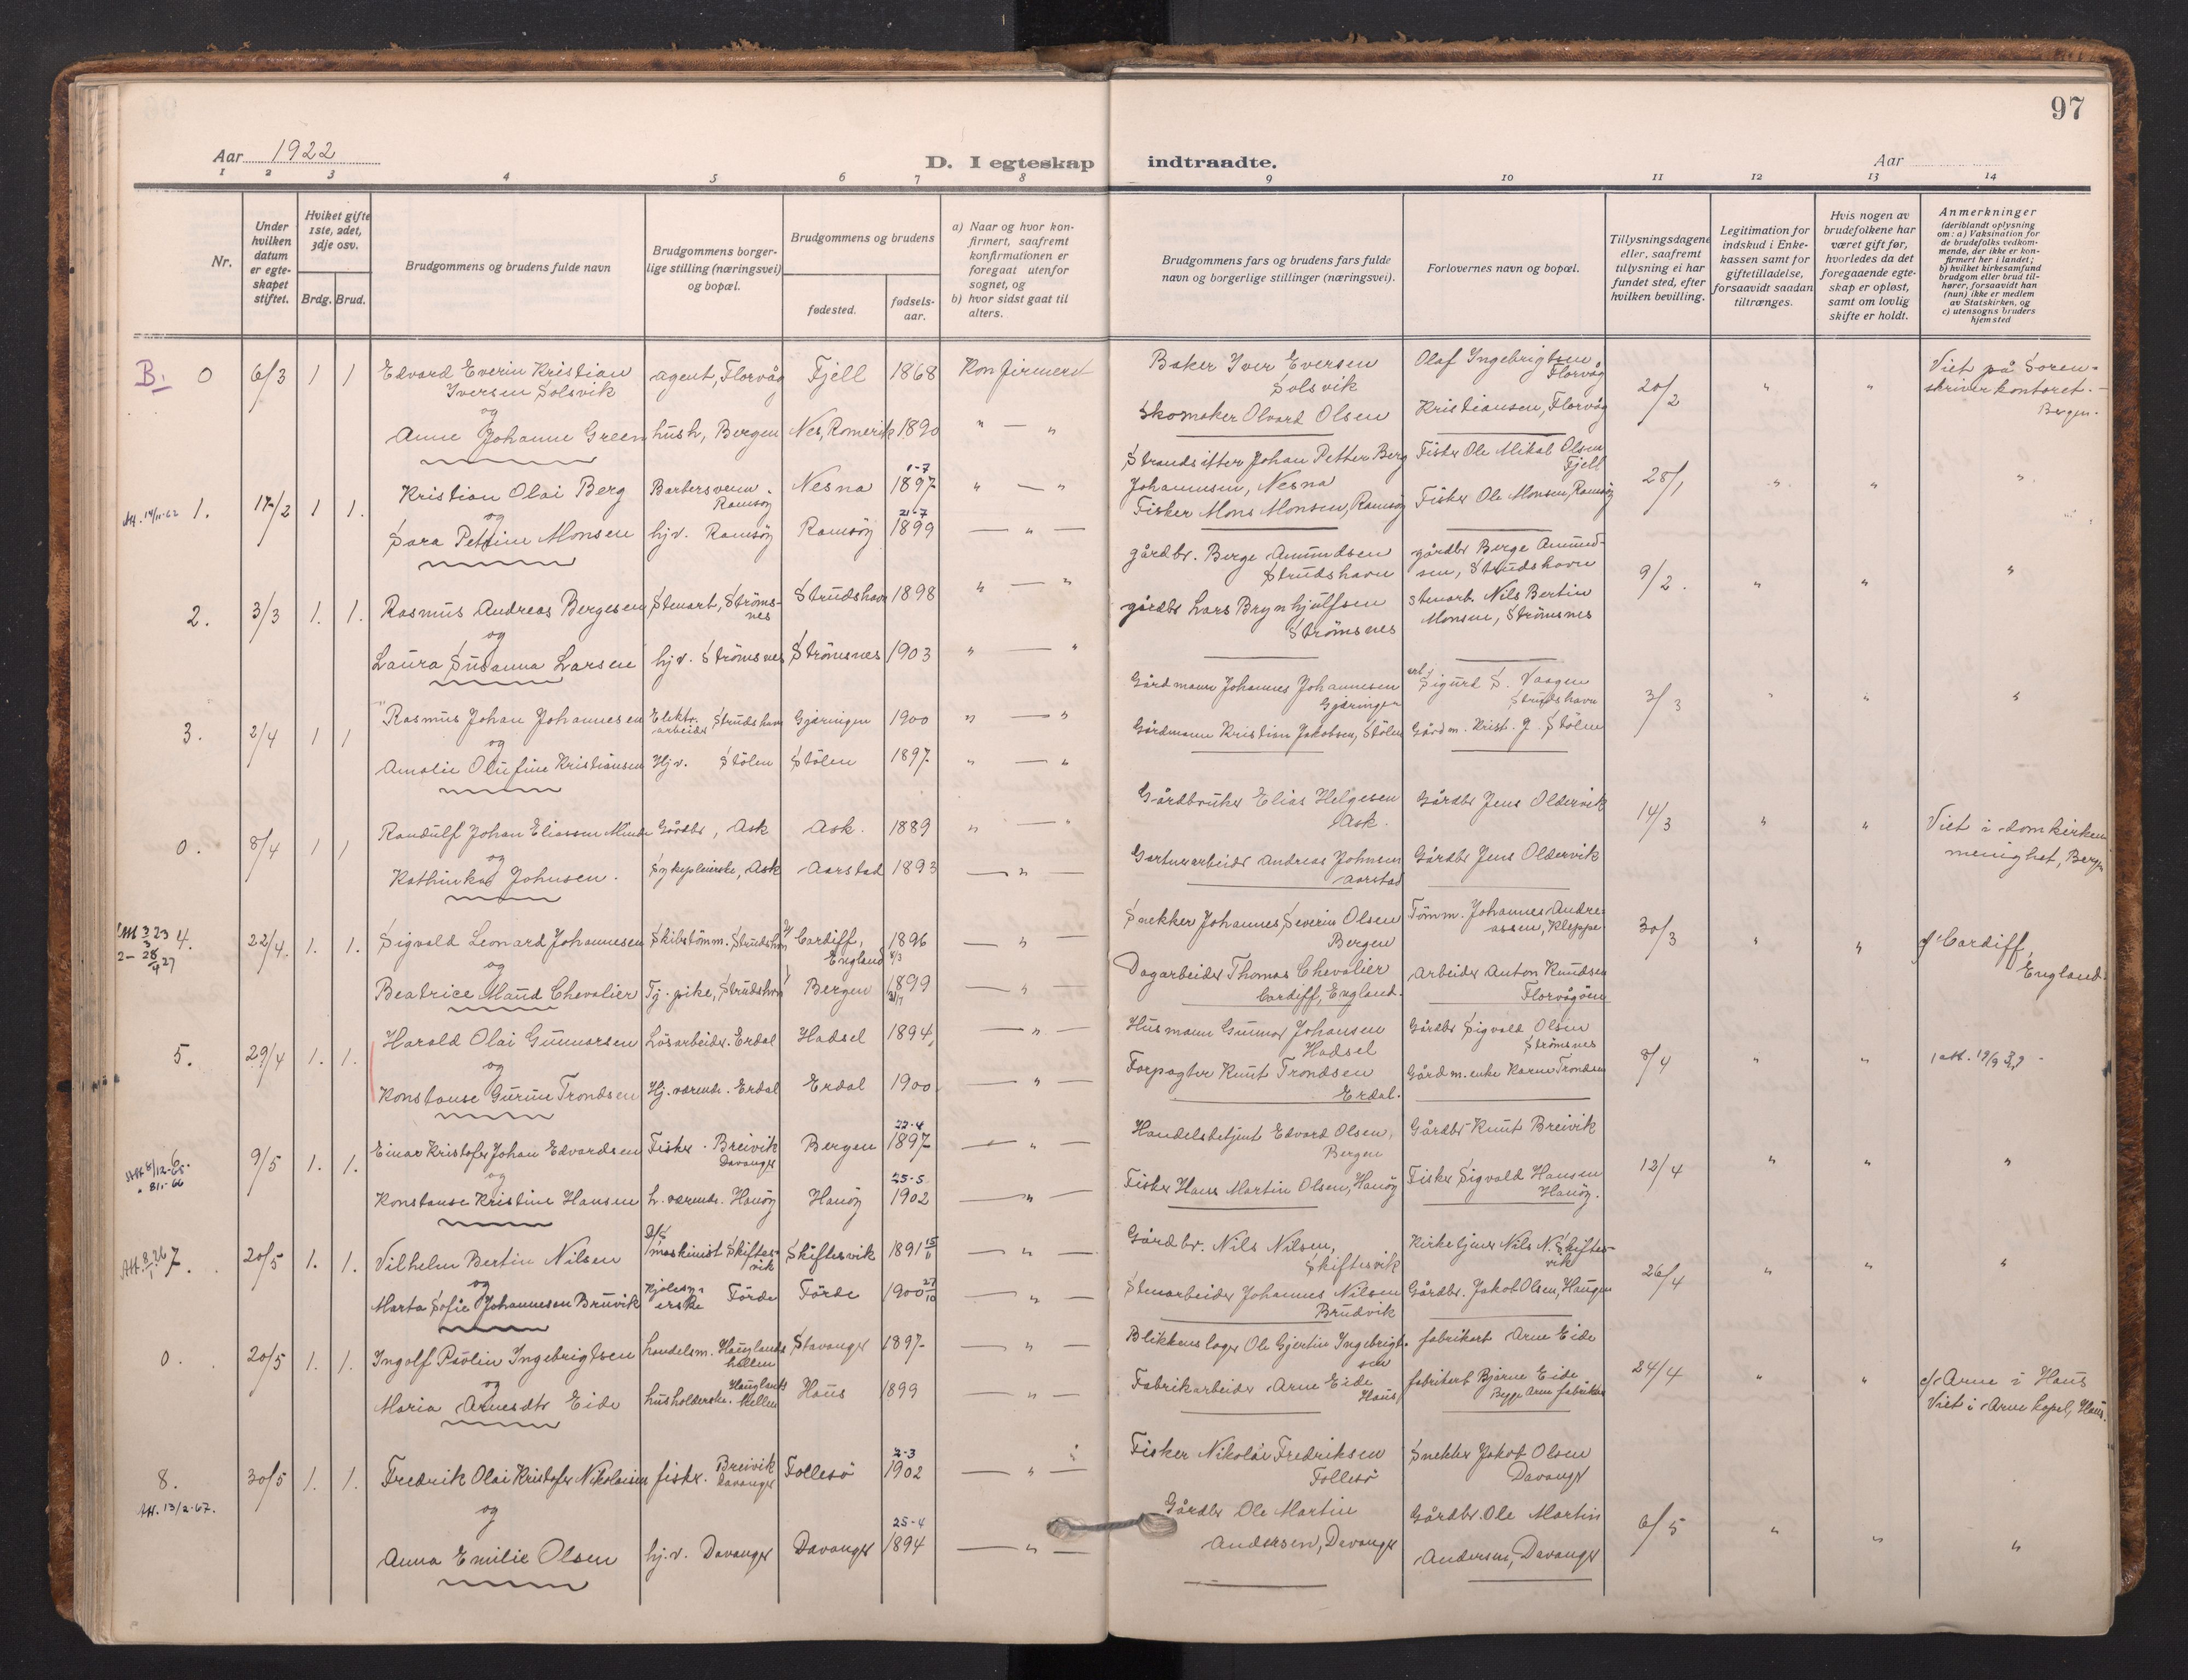 97
Aar 1922
D. I egteskap
indtraadte.
Aar
1 2 3 4 5 6 7 8 9 10 11 12 13 14
Nr.
Under hvilken datum er egteskapet stiftet.
Hvilket gifte 1ste, 2det, 3dje osv.
Brdg. Brud.
Brudgommens og brudens fulde navn
Brudgommens borgerlige stilling (næringsvei) og bopæl.
Brudgommens og brudens
fødested.
fødselsaar.
a) Naar og hvor konfirmert, saafremt konfirmationen er foregaat utenfor sognet, og
b) hvor sidst gaat til alters.
Brudgommens fars og brudens fars fulde navn og borgerlige stillinger (næringsvei).
Forlovernes navn og bopæl.
Tillysningsdagene eller, saafremt tillysning ei har fundet sted, efter hvilken bevilling.
Legitimation for indskud i Enkekassen samt for giftetilladelse, forsaavidt saadan tiltrænges.
Hvis nogen av brudefolkene har været gift før, hvorledes da det foregaaende egteskap er opløst, samt om lovlig skifte er holdt.
Anmerkninger
(deriblandt oplysning om: a) Vaksination for de brudefolks vedkommende, der ikke er konfirmert her i landet; b) hvilket kirkesamfund brudgom eller brud tilhører, forsaavidt han (hun) ikke er medlem av Statskirken, og c) utensogns bruders hjemsted
B. 0 6/3 1 1 Edvard Everin Kristian Iversen Solsvik agent, Florvåg Fjell 1868 Konfirmert
Baker Iver Eversen Solsvik Olaf Ingebrigtsen, Florvåg 20/2 " " Viet på Sorenskriverkontoret. Bergen.
og
Anne Johanne Green hush, Bergen Nes, Romerik 1890 " — "
Skomaker Olvard Olsen Kristiansen, Florvåg
Att. 14/11-62 1. 17/2 1 1. Kristian Olai Berg Barbersvenn. Ramsöy Nesna 1-7 1897 " — "
Strandsitter Johan Petter Berg Johannesen, Nesna Fisker Ole Mikal Olsen Fjell 28/1 " " "
og
Sara Petrine Monsen hjv. Ramsöy Ramsöy 21-7 1899 — " —
Fisker Mons Monsen, Ramsöy Fisker Ole Monsen, Ramsöy
2. 3/3 1. 1. Rasmus Andreas Bergesen Stenarb, Strömsnes Strudshavn 1898 " — "
gårdbr. Berge Amundsen Strudshavn gårdbr Berge Amundsen, Strudshavn 9/2. " " "
og
Laura Susanna Larsen hjv. Strömsnes Strömsnes 1903 " — "
gårdbr Lars Brynhjulfsen Strömsnes Stenarb. Nils Bertin Monsen, Strömsnes
3. 2/4 1 1 Rasmus Johan Johannesen Elektr. arbeider Strudshavn Gjæringen 1900 " — "
Gårdmann Johannes Johannesen Gjæringen arb. Sigurd S. Vaagen Strudshavn 3/3 " " "
og
Amalie Olufine Kristiansen Hjv. Stölen Stölen 1897 " — "
Gårdmann Kristian Jakobsen, Stölen Gårdm. Krist. J. Stölen
0. 8/4 1 1 Randulf Johan Eliassen Minde Gårdbr, Ask Ask. 1889 " — "
Gårdbruker Elias Helgesen Ask. Gårdbr Jens Oldervik 14/3 " " Viet i domkirken menighet, Bergen
og
Kathinka Johnsen. Sykepleierske, Ask Aarstad 1893 — " —
Gartnerarbeider Andreas Johnsen Aarstad Gårdbr Jens Oldervik
4. 22/4. 1. 1. Sigvald Leonard Johannesen Skibstömm. Strudshavn Cardiff, England 1896 — " —
Snekker Johannes Severin Olsen Bergen Tömm. Johannes Andreassen, Kleppe 30/3 " " Cardiff, England.
og
Beatrice Maud Chevalier Tj. pike, Strudshavn Bergen 1899 — " —
Dagarbeider Thomas Chevalier Cardiff, England. Arbeider Anton Knudsen Florvågöen
5. 29/4 1. 1. Harald Olai Gunnarsen Lösarbeider. Erdal Hadsel 1894 — " —
Husmann Gunnar Johansen Hadsel Gårdbr Sigvald Olsen Strömsnes 8/4 " "
og
Konstanse Gurine Trondsen Hj. værende. Erdal Erdal 1900 — " —
Forpagter Knut Trondsen Erdal. Gårdm. enke Karen Trondsen
6. 9/5 1. 1. Einar Kristofer Johan Edvardsen Fisker. Breivik Davanger Bergen 22-4 1897 — " —
Handelsbetjent Edvard Olsen, Bergen Gårdbr Knut Breivik 12/4 " " "
og
Konstanse Kristine Hansen h. værende. Hanöy Hanöy 25-5 1902 — " —
Fisker Hans Martin Olsen, Hanöy Fisker Sigvald Hansen Hanöy.
7. 20/5 1. 1. Vilhelm Bertin Nilsen maskinist Skiftesvik Skiftesvik 1891 15/11 — " —
Gårdbr. Nils Nilsen, Skiftesvik Kirketjener Nils N. Skiftesvik 26/4 " " "
og
Marta Sofie Johannesen Bruvik Kjolesyerske Förde Förde 1900 27/10 — " —
Stenarbeider Johannes Nilsen Brudvik Gårdbr. Jakob Olsen, Haugen
0. 20/5 1. 1. Ingolf Paulin Ingebrigtsen handelsm. Hauglandshellen Stavanger 1897 — " —
Blikkenslager Ole Gjertin Ingebrigtsen fabrikarb Arne Eide 24/4 " " Arne i Haus
og
Maria Arnesdtr Eide husholderske. Hauglandshellen Haus 1899 — " —
Fabrikarbeider Arne Eide Haus fabrikarb Bjarne Eide Begge Arne fabrikker Viet i Arne kapel, Haus.
8. 30/5 1. 1. Fredrik Olai Kristofer Nikolaisen fisker. Breivik Davanger Follesö 2-3 1902 — " —
Fisker Nikolai Fredriksen Follesö Snekker Jakob Olsen Davanger 6/5 " " "
Att. 13/2-67.
og
Anna Emilie Olsen hj.v. Davanger Davanger 25-4 1894 — " —
Gårdbr Ole Martin Andersen, Davanger Gårdbr. Ole Martin Andersen, Davanger